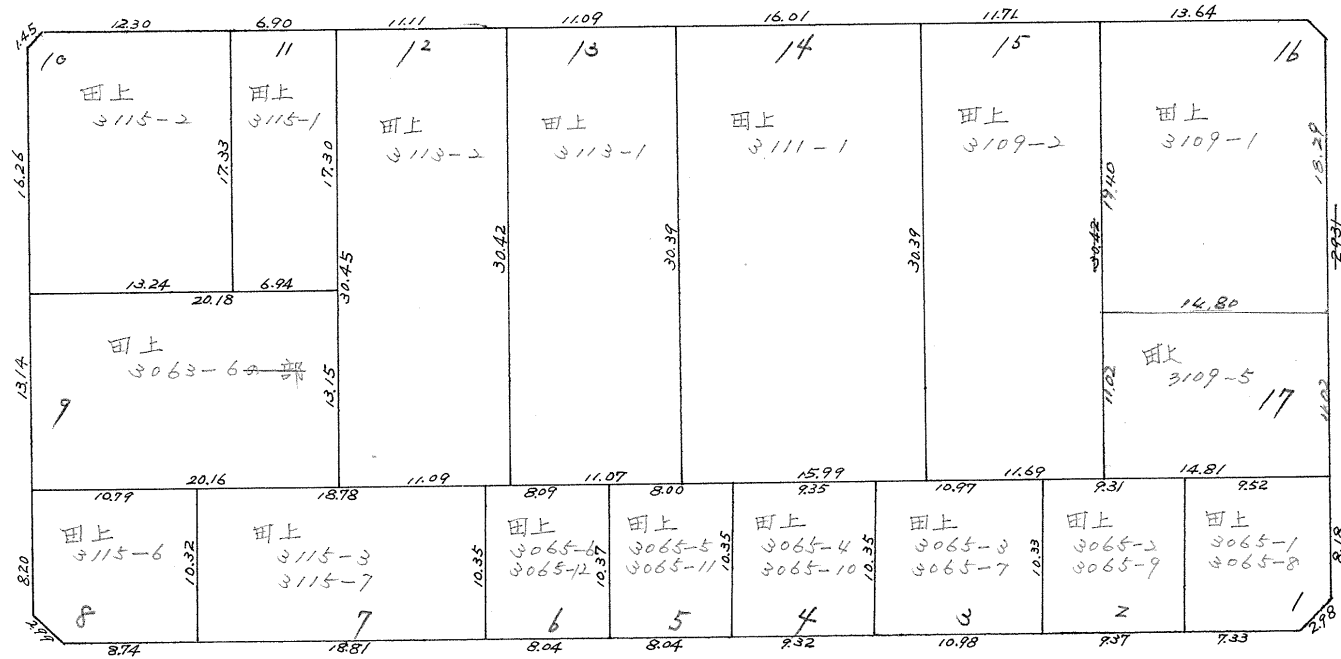 12.30 6.90 11.11 11.09 16.01 11.71 13.64
1.45
10 11 12 13 14 15 16
田上
3115-2
田上
3115-1
田上
3113-2
田上
3113-1
田上
3111-1
田上
3109-2
田上
3109-1
16.26 17.33 17.30 30.45 30.42 30.39 30.39 30.42 19.40 18.29 29.31
13.24 6.94
20.18
14.80
田上
3063-6の一部
田上
3109-5
13.14 13.15 11.02 11.02
9 17
20.16 11.09 11.07 15.99 11.69 14.81
10.79 18.78 8.09 8.00 9.35 10.97 9.31 9.52
田上
3115-6
田上
3115-3
3115-7
田上
3065-6
3065-12
田上
3065-5
3065-11
田上
3065-4
3065-10
田上
3065-3
3065-7
田上
3065-2
3065-9
田上
3065-1
3065-8
8.20 10.32 10.35 10.37 10.35 10.35 10.33 8.18
8 7 6 5 4 3 2 1
2.98
8.74 18.81 8.04 8.04 9.32 10.98 9.37 7.33